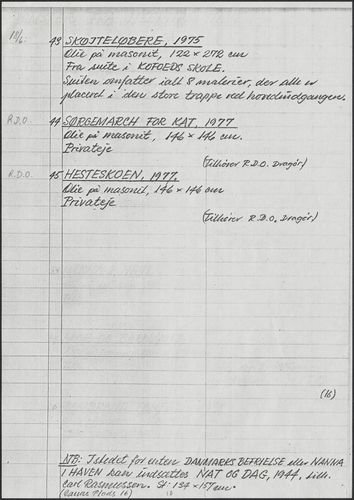 10/6. 43 SKØJTELØBERE, 1975
Olie på masonit, 122 × 272 cm
Fra suite i KOFOEDS SKOLE.
Suiten omfatter ialt 8 malerier, der alle er
placeret i den store trappe ved hovedindgangen.
R.D.O. 44 SØRGEMARCH FOR KAT, 1977
Olie på masonit, 146 × 146 cm.
Privateje
(Tilhører R.D.O. Dragør)
R.D.O. 45 HESTESKOEN, 1977.
Olie på masonit, 146 × 146 cm
Privateje
(Tilhører R.D.O. Dragør)
(16)
NB: Istedet for enten DANMARKS BEFRIELSE eller NANNA
I HAVEN kan indsættes NAT OG DAG, 1944, tilh.
Carl Rasmussen. St: 134 × 157 cm
16)